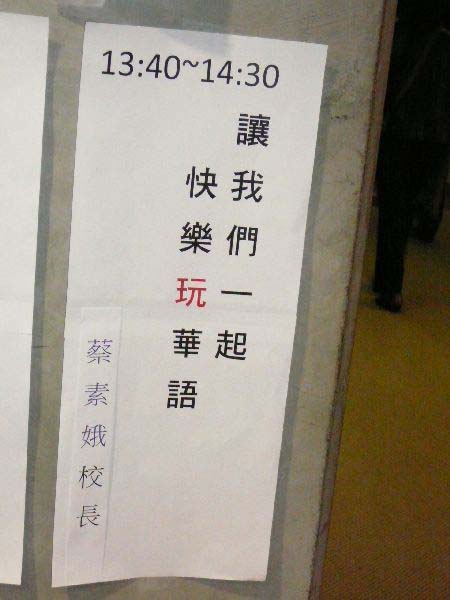 13:40~14:30
讓我們一起
快樂玩華語
蔡素娥校長